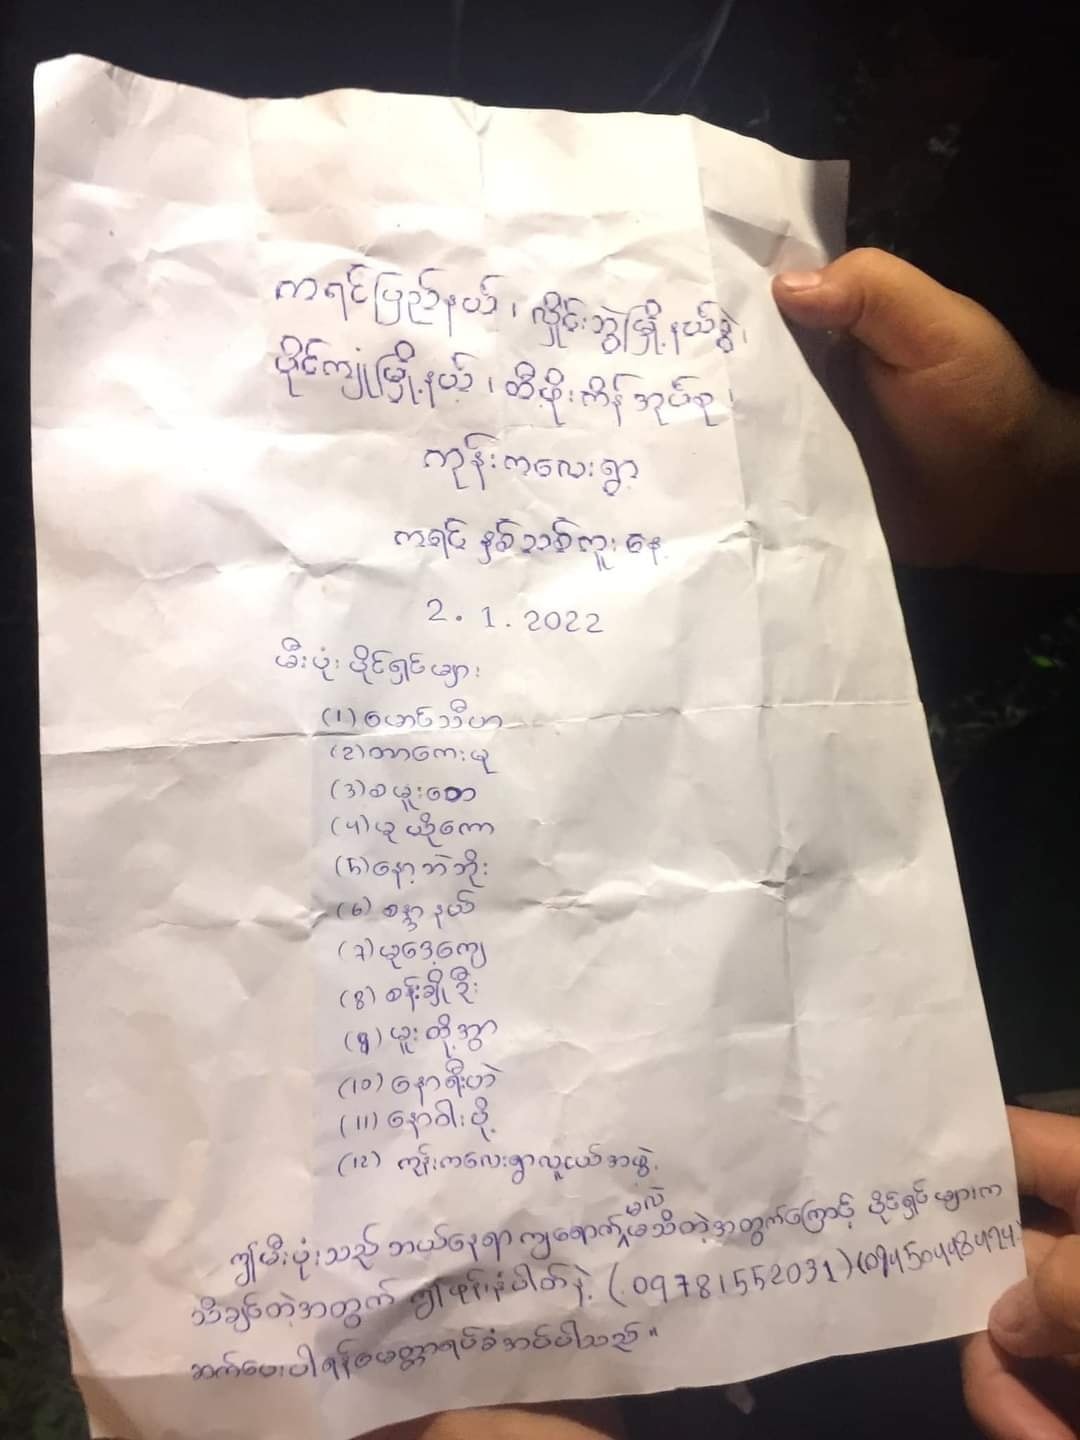 ကရင်ပြည်နယ်၊ လှိုင်းဘွဲ့မြို့နယ်ခွဲ၊
ပိုင်ကျုံမြို့နယ်၊ တီဖိုးကိန်အုပ်စု၊
ကုန်းကလေးရွာ
ကရင်နှစ်သစ်ကူးနေ့
2.1.2022
မီးပုံးပိုင်ရှင်များ
(1) စောင်သီဟ
(2) တာကေးမု
(3) စမူးတော
(4) မုယိုကော
(5) နော့ဘဲဘိုး
(6) စန္ဒာနယ်
(7) မုဒေ့ကျေ
(8) စန်းချိုဦး
(9) မူးထို့အွာ
(10) နောရီးဟဲ
(11) နောဝါးပို့
(12) ကုန်းကလေးရွာလူငယ်အဖွဲ့
ဤမီးပုံးသည် ဘယ်နေရာကျရောက်မှန်းမသိတဲ့အတွက်ကြောင့် ပိုင်ရှင်များက
သိချင်တဲ့အတွက် ဤဖုန်းနံပါတ်နဲ့ (09781552031) (09450448424)
ဆက်ပေးပါရန်မေတ္တာရပ်ခံအပ်ပါသည်"